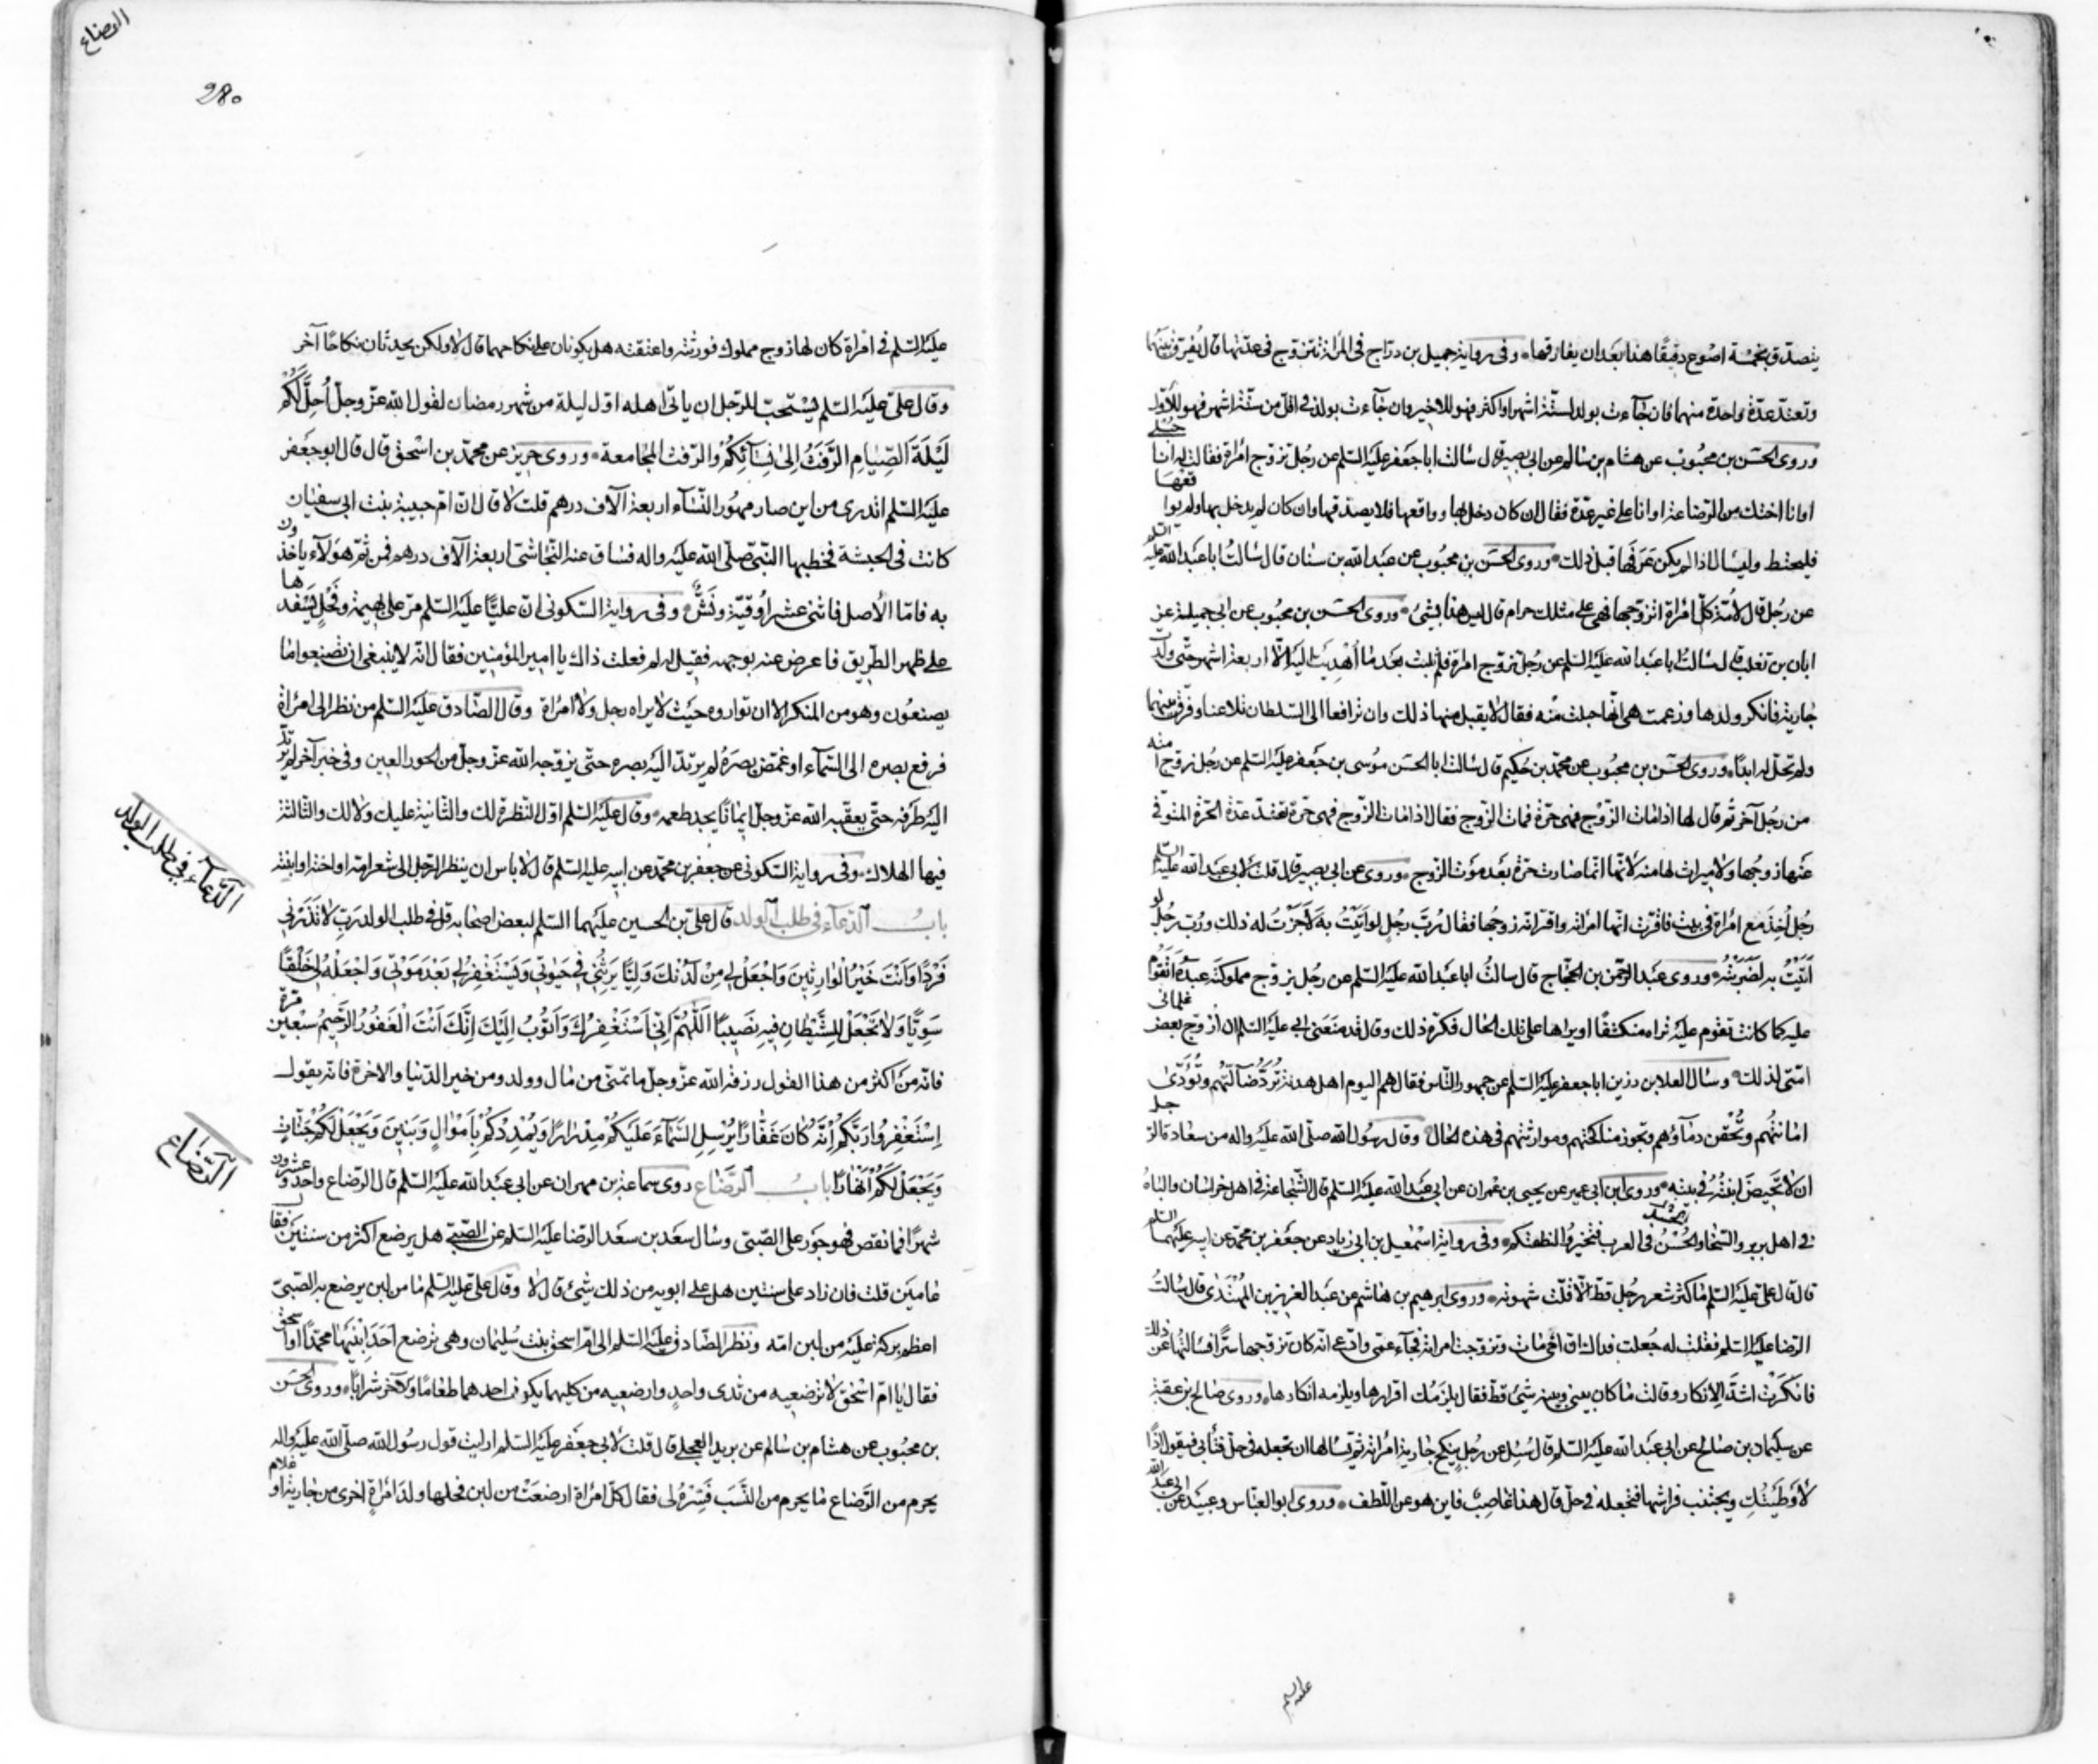 يتصدق بخمسة اصوع دقيقًا هذا بعد ان يفارقها وفى رواية جميل بن دراج فى المرأة تتزوج فى عدتها قال يفرق بينهما
وتعتد عدة واحدة منهما فان جاءت بولد لستة اشهر او اكثر فهو للاخير وان جاءت بولد فى اقل من ستة اشهر فهو للاول
وروى الحسن بن محبوب عن هشام بن سالم عن ابى بصير قال سالت ابا جعفر عليه السلم عن رجل تزوج امراة فقالت له انا حبلى
او انا اختك من الرضاعة او انا على غير عدة فقال ان كان دخل بها وواقعها فلا يصدقها وان كان لم يدخل بها ولم يواقعها
فليحتط وليسال اذا لم يكن عرفها قبل ذلك وروى الحسن بن محبوب عن عبد الله بن سنان قال سالت ابا عبد الله عليه السلم
عن رجل قال لامته كل امراة اتزوجها فهى على مثلك حرام قال ليس هذا بشئ وروى الحسن بن محبوب عن ابى جميلة عن
ابان بن تغلب قال سالت ابا عبد الله عليه السلم عن رجل تزوج امراة فلم تلبث بعد ما اهديت اليه الا اربعة اشهر حتى ولدت
جارية فانكر ولدها وزعمت هى انها حبلت منه فقال لا يقبل منها ذلك وان ترافعا الى السلطان تلاعنا وفرق بينهما
ولم تحل له ابدًا وروى الحسن بن محبوب عن محمد بن حكيم قال سالت ابا الحسن موسى بن جعفر عليه السلم عن رجل زوج امته
من رجل آخر ثم قال لها اذا مات الزوج فهى حرة فمات الزوج فقال اذا مات الزوج فهى حرة تعتد عدة الحرة المتوفى
عنها زوجها ولا ميراث لها منه لانها انما صارت حرة بعد موت الزوج وروى عن ابى بصير قال قلت لابى عبد الله عليه السلم
رجل اخذ مع امراة فى بيت فاقرت انها امراته واقر انه زوجها فقال رب رجل لو اتيت به لاجزت له ذلك ورب رجل لو
اتيت به لضربته وروى عبد الرحمن بن الحجاج قال سالت ابا عبد الله عليه السلم عن رجل يزوج مملوكته عبده اتقوم
عليه كما كانت تقوم عليه تراه منكشفًا او يراها على تلك الحال فكره ذلك وقال قد منعنى ابى عليه السلم ان ازوج بعض غلمانى
امتى لذلك وسال العلا بن رزين ابا جعفر عليه السلم عن جمهور الناس فقال هم اليوم اهل هدنة ترد ضالتهم وتؤدى
امانتهم وتحقن دماؤهم وتجوز مناكحتهم وموارثتهم فى هذه الحال وقال رسول الله صلى الله عليه واله من سعادة الرجل
ان لا تحيض ابنته فى بيته وروى ابن ابى عمير عن يحيى بن عمران عن ابى عبد الله عليه السلم قال الشجاعة فى اهل خراسان والباه
فى اهل بربر والسخا والحسد فى العرب فتخيروا لنطفكم وفى رواية اسمعيل بن ابى زياد عن جعفر بن محمد عن ابيه عليهما السلم
قال قال على عليه السلم ما كثر شعر رجل قط الا قلت شهوته وروى ابرهيم بن هاشم عن عبد العزيز بن المهتدى قال سالت
الرضا عليه السلم فقلت له جعلت فداك ان اخى مات وتزوجت امراته فجاء عمى وادعى انه كان تزوجها سرًا فسالتها عن ذلك
فانكرت اشد الانكار وقالت ما كان بينى وبينه شئ قط فقال يلزمك اقرارها ويلزمه انكارها وروى صالح بن عقبة
عن سليمان بن صالح عن ابى عبد الله عليه السلم قال سئل عن رجل ينكح جارية امراته ثم يسالها ان تجعله فى حل فتأبى فيقول اذًا
لاوطينك ويجتنب فراشها فتجعله فى حل قال هذا غاصب فاين هو عن اللطف وروى ابو العباس وعبيد عن ابى عبد الله
عليه السلم
الرضاع
280
عليه السلم فى امراة كان لها زوج مملوك فورثته واعتقته هل يكونان على نكاحهما قال لا ولكن يجددان نكاحًا آخر
وقال على عليه السلم يستحب للرجل ان ياتى اهله اول ليلة من شهر رمضان لقول الله عز وجل احل لكم
ليلة الصيام الرفث الى نسائكم والرفث المجامعة وروى حريز عن محمد بن اسحق قال قال ابو جعفر
عليه السلم اتدرى من اين صار مهور النساء اربعة آلاف درهم قلت لا قال ان ام حبيبة بنت ابى سفيان
كانت فى الحبشة فخطبها النبى صلى الله عليه واله فساق عنه النجاشى اربعة آلاف درهم فمن ثم هؤلاء ياخذون
به فاما الاصل فاثنى عشر اوقية ونش وفى رواية السكونى ان عليًا عليه السلم مر على بهيمة وفحل يسفدها
على ظهر الطريق فاعرض عنه بوجهه فقيل له لم فعلت ذاك يا امير المؤمنين فقال انه لا ينبغى ان تصنعوا ما
يصنعون وهو من المنكر الا ان تواروه حيث لا يراه رجل ولا امراة وقال الصادق عليه السلم من نظر الى امراة
فرفع بصره الى السماء او غمض بصره لم يرتد اليه بصره حتى يزوجه الله عز وجل من الحور العين وفى خبر آخر لم يرتد
اليه طرفه حتى يعقبه الله عز وجل ايمانًا يجد طعمه وقال عليه السلم اول النظرة لك والثانية عليك ولا لك والثالثة
فيها الهلاك وفى رواية السكونى عن جعفر بن محمد عن ابيه عليه السلم قال لا باس ان ينظر الرجل الى شعر امه او اخته او ابنته
باب الدعاء فى طلب الولد قال على بن الحسين عليهما السلم لبعض اصحابه قل فى طلب الولد رب لا تذرنى
الدعاء فى طلب الولد
فردًا وانت خير الوارثين واجعل لى من لدنك وليًا يرثنى فى حيوتى ويستغفر لى بعد موتى واجعله لى خلقًا
سويًا ولا تجعل للشيطان فيه نصيبًا اللهم انى استغفرك واتوب اليك انك انت الغفور الرحيم سبعين مرة
فانه من اكثر من هذا القول رزقه الله عز وجل ما تمنى من مال وولد ومن خير الدنيا والاخرة فانه يقول
استغفروا ربكم انه كان غفارًا يرسل السماء عليكم مدرارًا ويمددكم باموال وبنين ويجعل لكم جنات
ويجعل لكم انهارًا باب الرضاع روى سماعة بن مهران عن ابى عبد الله عليه السلم قال الرضاع واحد وعشرون
الرضاع
شهرًا فما نقص فهو جور على الصبى وسال سعد بن سعد الرضا عليه السلم عن الصبى هل يرضع اكثر من سنتين فقال
عامين قلت فان زاد على سنتين هل على ابويه من ذلك شئ قال لا وقال على عليه السلم ما من لبن يرضع به الصبى
اعظم بركة عليه من لبن امه ونظر الصادق عليه السلم الى ام اسحق بنت سليمان وهى ترضع احد ابنيها محمدًا او اسحق
فقال يا ام اسحق لا ترضعيه من ثدى واحد وارضعيه من كليهما يكون احدهما طعامًا والآخر شرابًا وروى الحسن
بن محبوب عن هشام بن سالم عن بريد العجلى قال قلت لابى جعفر عليه السلم ارايت قول رسول الله صلى الله عليه واله
يحرم من الرضاع ما يحرم من النسب فسره لى فقال كل امراة ارضعت من لبن فحلها ولد امراة اخرى من جارية او غلام